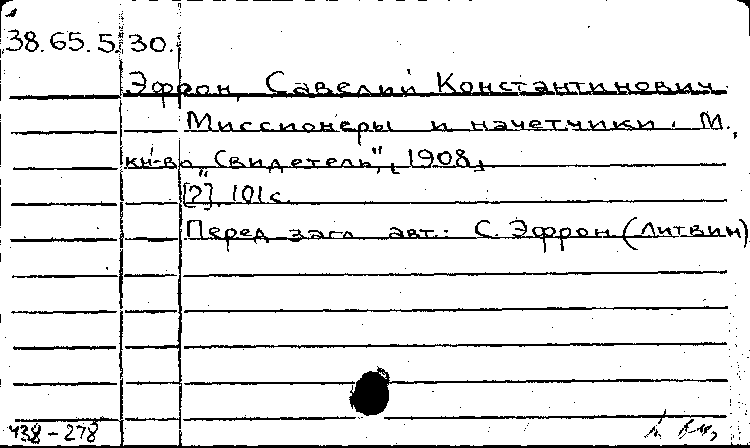 38.65.5.30.
Эфрон, Савелий Константинович
Миссионеры и начетчики. М.,
кн-во "Свидетель", 1908,
[2], 101 с.
Перед загл. авт.: С. Эфрон (Литвин)
438-278